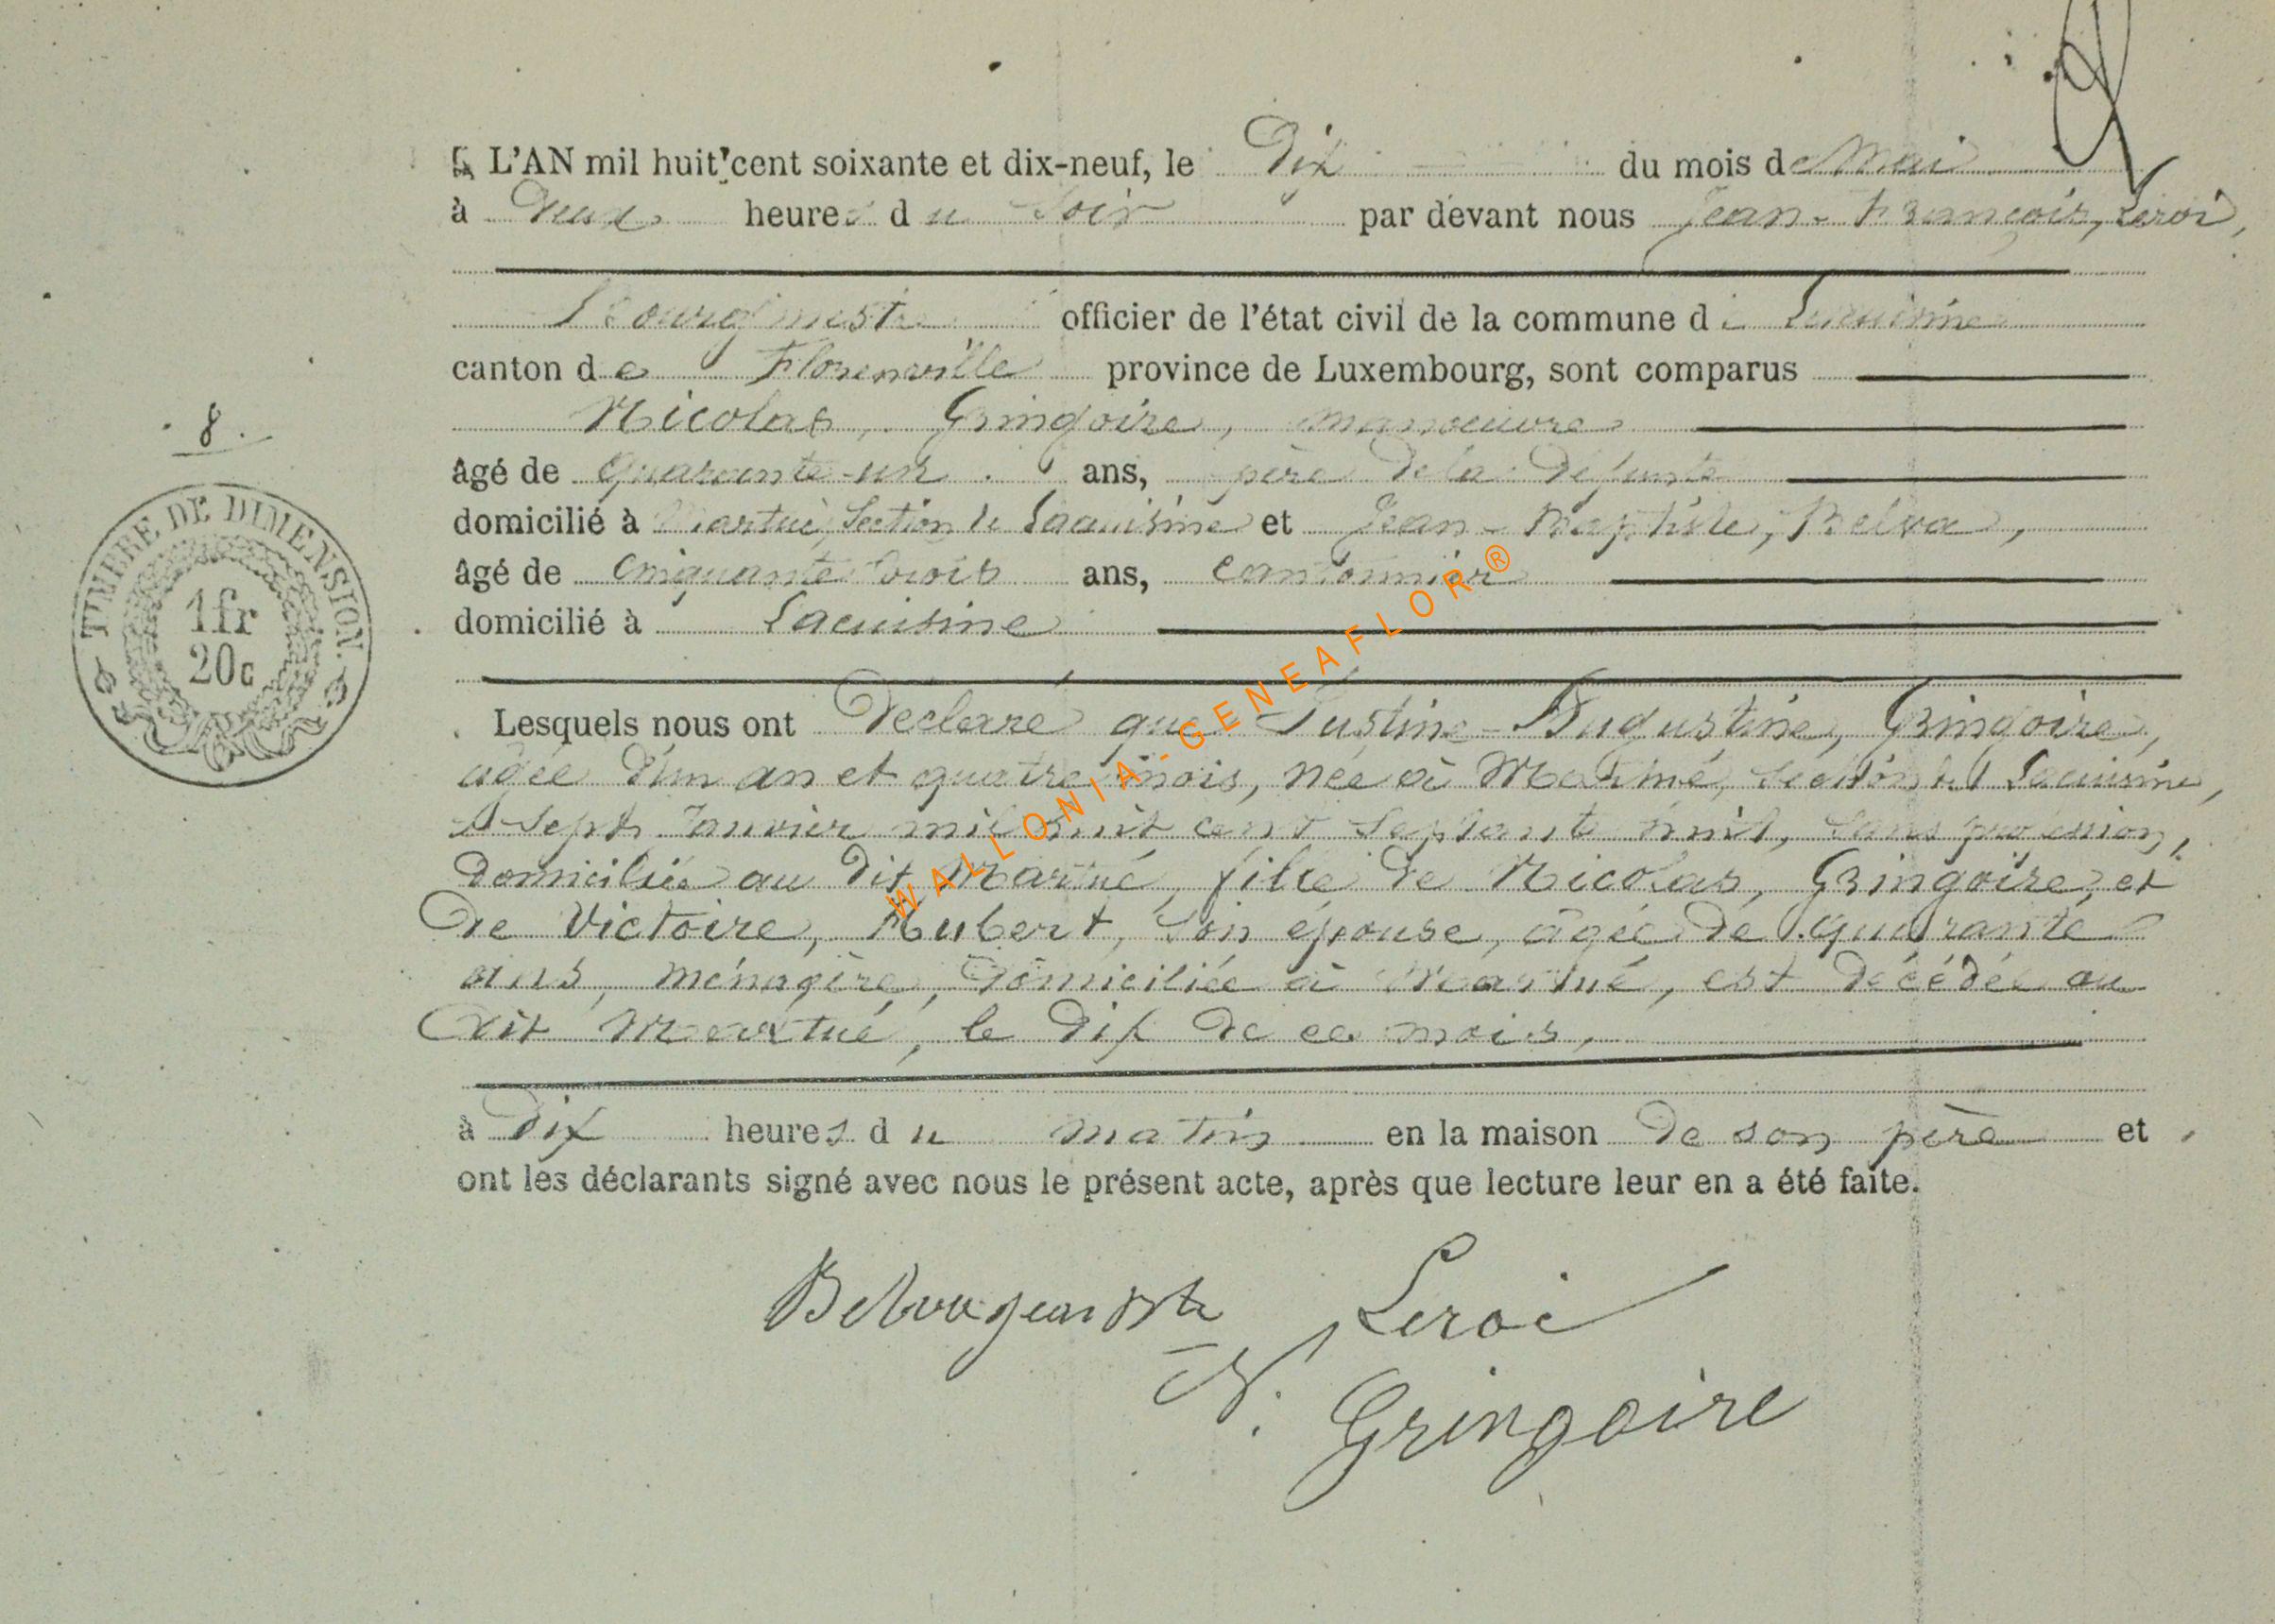 L'AN mil huit cent soixante et dix-neuf, le Dix du mois de Mai
à Deux heures du Soir par devant nous Jean-François, Leroi,
Bourgmestre officier de l'état civil de la commune de Lacuisine
canton de Florenville province de Luxembourg, sont comparus
Nicolas, Gringoire, manoeuvre
8.
âgé de quarante-un ans, père de la défunte
domicilié à Martué, Section de Lacuisine et Jean-Baptiste, Belva,
âgé de Cinquante trois ans, cantonnier
domicilié à Lacuisine
TIMBRE DE DIMENSION.
1fr
20c
Lesquels nous ont Déclaré que Justine-Augustine, Gringoire,
agée d'un an et quatre mois, née à Martué, Section de Lacuisine,
le Sept Janvier mil huit cent Septante huit, sans profession,
domiciliée au dit Martué, fille de Nicolas, Gringoire, et
de Victoire, Hubert, son épouse, agée de quarante
ans, ménagère, domiciliée à Martué, est décédée au
dit Martué, le dix de ce mois,
à Dix heures du matin en la maison de son père et
ont les déclarants signé avec nous le présent acte, après que lecture leur en a été faite.
Belva jean Bte Leroi
N. Gringoire
WALLONIA-GENEAFLOR®